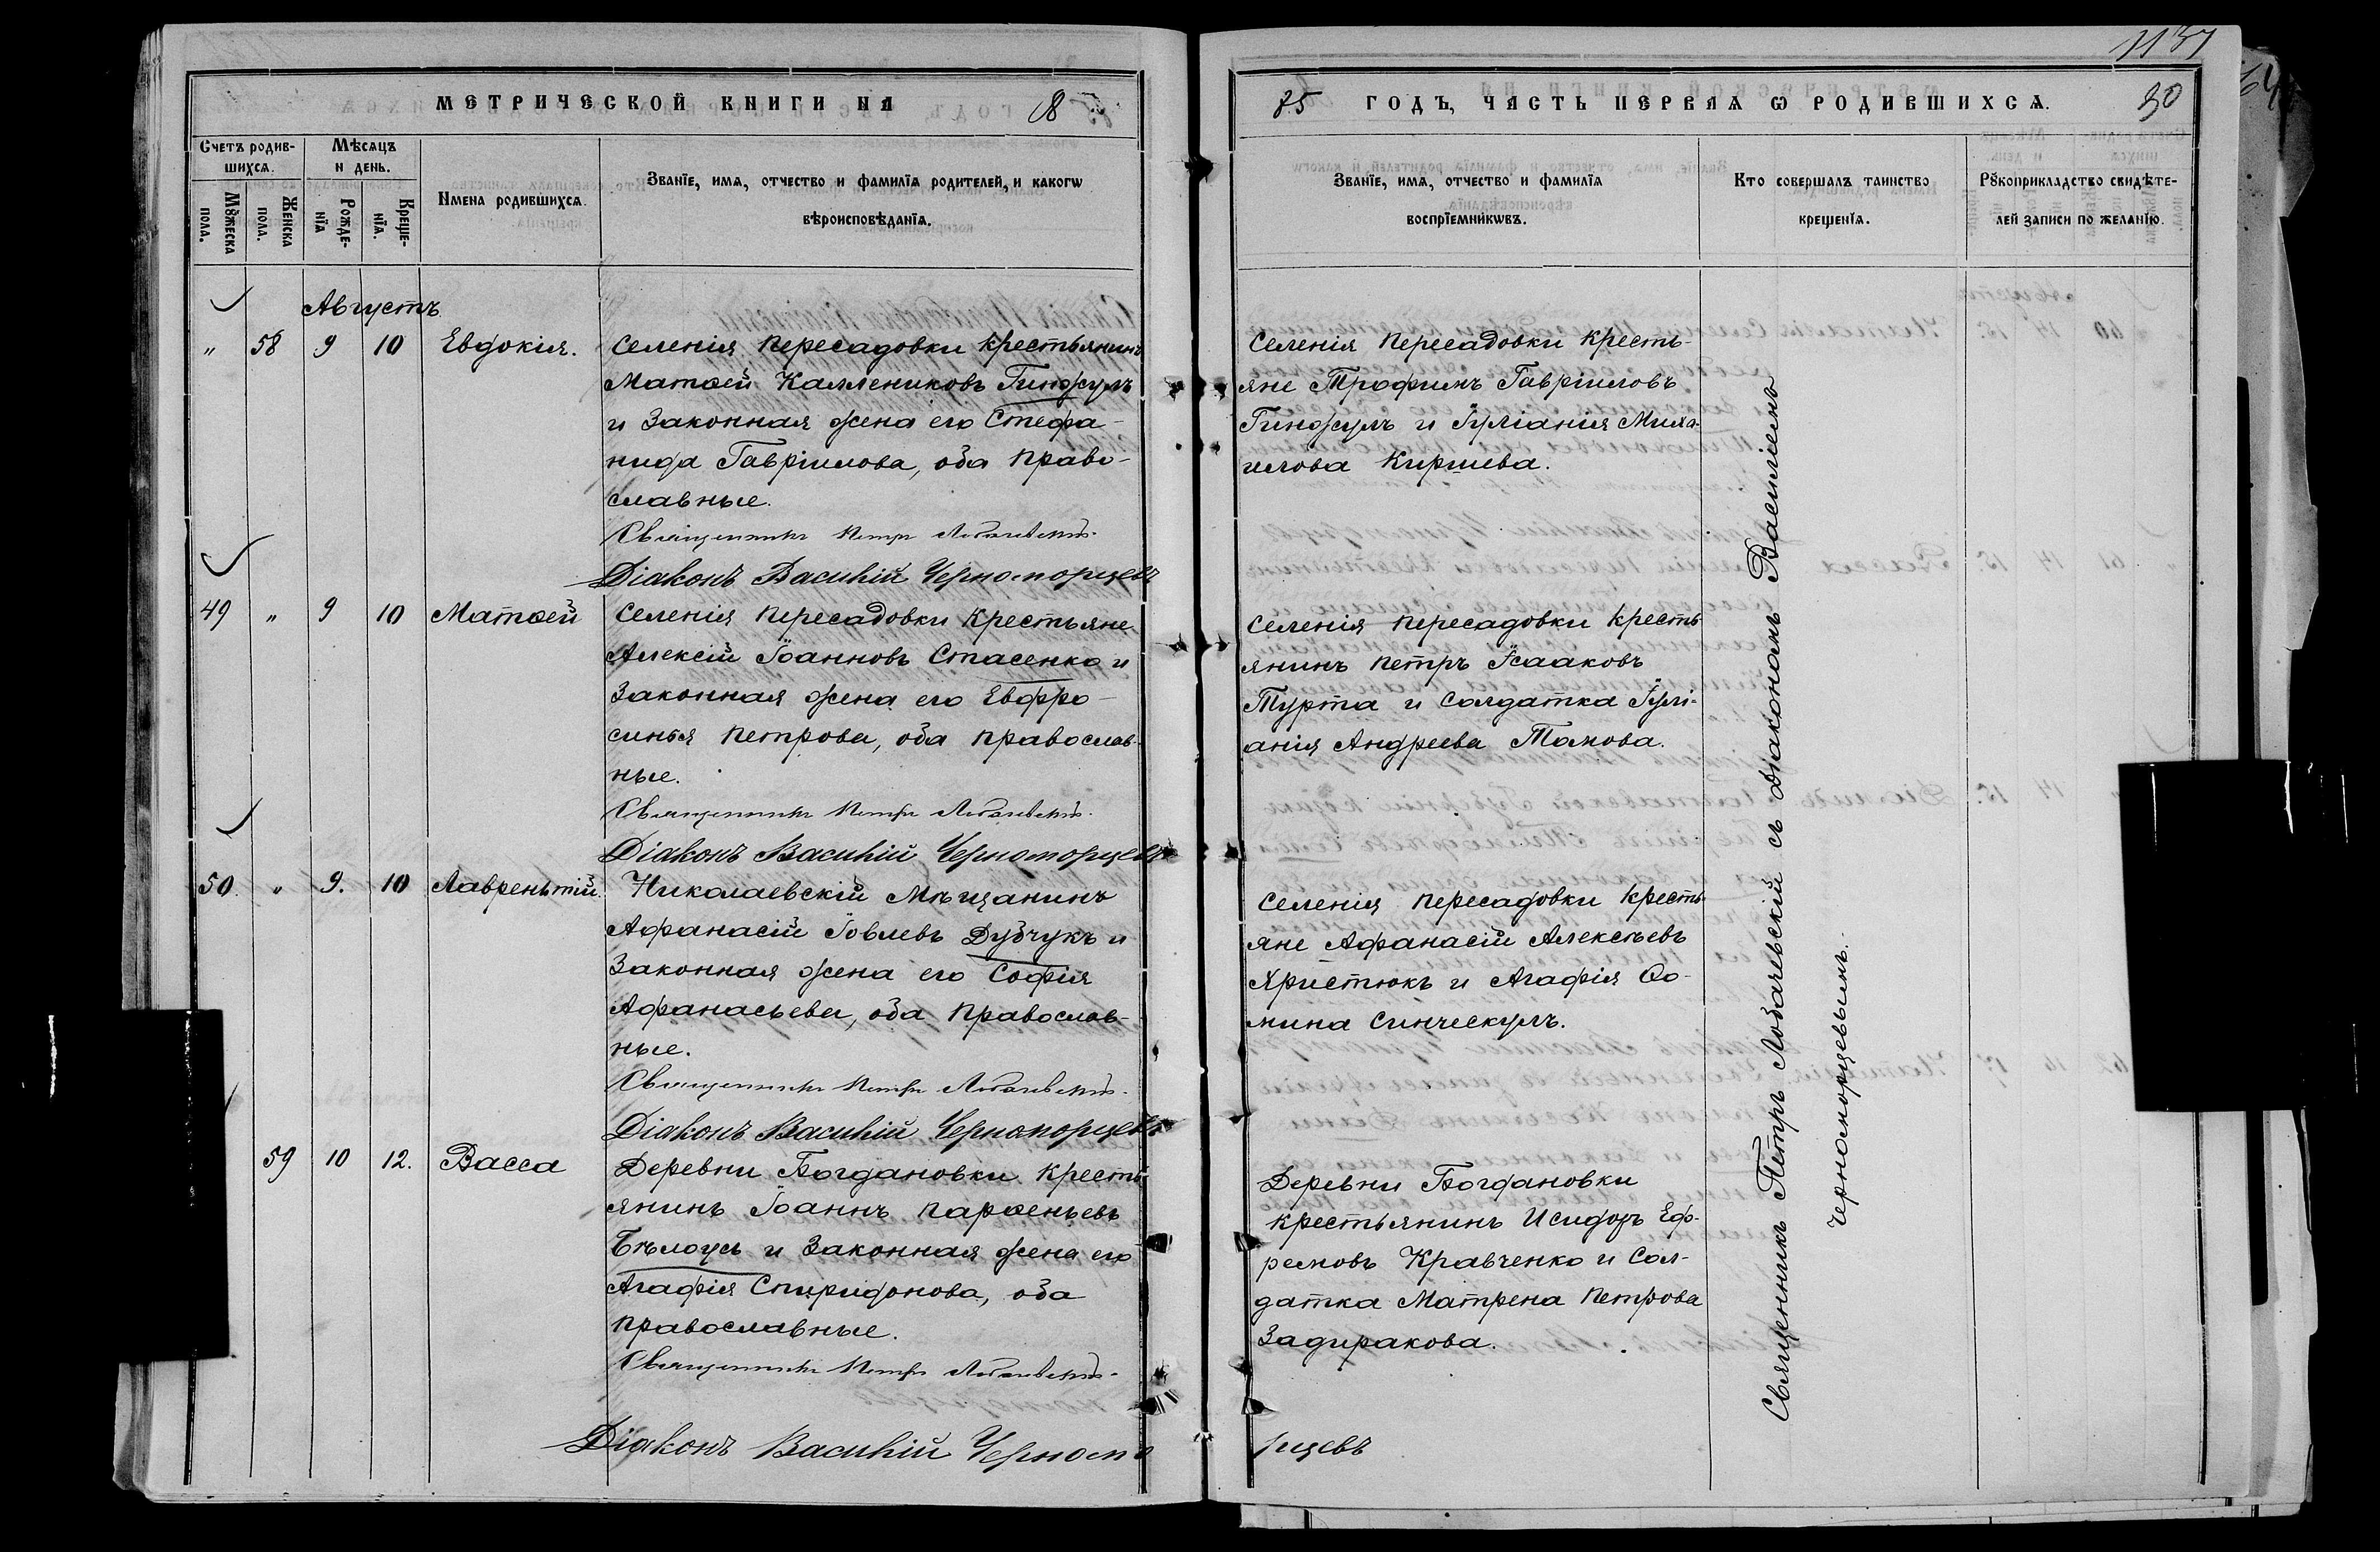 1137
МЕТРИЧЕСКОЙ КНИГИ НА 18
75 ГОДЪ, ЧАСТЬ ПЕРВАЯ Ѡ РОДИВШИХСѦ. 30
Счетъ родив-
шихсѧ.
Мѣсѧцъ
и день.
Мꙋжеска
пола.
Женска
пола.
Рожде-
нїѧ
Креще-
нїѧ.
Имена родившихсѧ.
Званїе, имѧ, отчество и фамилїѧ родителей, и какогѡ
вѣроисповѣданїѧ.
Званїе, имѧ, отчество и фамилїѧ
воспрїемникѡвъ.
Кто совершалъ таинство
крещенїѧ.
Рꙋкоприкладство свидѣте-
лей записи по желанїю.
Августъ
" 58 9 10 Евдокія.
Селенія Пересадовки крестьянинъ
Матѳей Каллениковъ Гинжулъ
и законная жена его Стефа-
нида Гавріилова, оба право-
славные.
Священникъ Петръ Лобачевскій.
Діаконъ Василій Черноморцевъ
Селенія Пересадовки кресть-
яне Трофимъ Гавріиловъ
Гинжулъ и Іуліанія Миха-
илова Киршева.
49 " 9 10 Матѳей
Селенія Пересадовки крестьяне
Алексій Іоанновъ Стасенко и
законная жена его Евфро-
синья Петрова, оба православ-
ные.
Священникъ Петръ Лобачевскій.
Діаконъ Василій Черноморцевъ
Селенія Пересадовки кресть-
янинъ Петръ Исааковъ
Турта и солдатка Іулі-
анія Андреева Томова.
50. " 9. 10 Лаврентій.
Николаевскій Мѣщанинъ
Афанасій Іовлевъ Дубчукъ и
законная жена его Софія
Афанасьева, оба православ-
ные.
Священникъ Петръ Лобачевскій.
Діаконъ Василій Черноморцевъ
Селенія Пересадовки кресть-
яне Афанасій Алексѣевъ
Христюкъ и Агафія Ѳо-
мина Синческулъ.
59 10 12. Васса
Деревни Богдановки кресть-
янинъ Іоаннъ Парѳеньевъ
Бѣлоусъ и законная жена его
Агафія Спиридонова, оба
православные.
Священникъ Петръ Лобачевскій.
Діаконъ Василій Черномо рцевъ
Деревни Богдановки
крестьянинъ Исидоръ Еф-
ремовъ Кравченко и сол-
датка Матрена Петрова
Задиракова.
Священникъ Петръ Лобачевскій съ діакономъ Василіемъ
Черноморцевымъ.